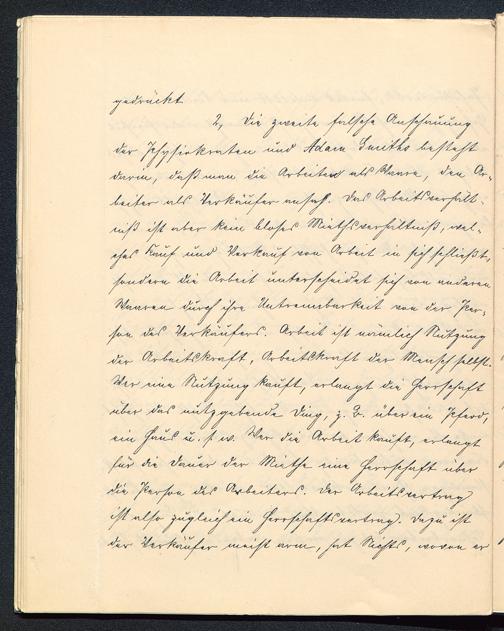 gedrückt.
2, Die zweite falsche Anschauung
der Physiokraten und Adam Smiths besteht
darin, daß man die Arbeiten als Waare, den Ar-
beiter als Verkäufer ansah. Das Arbeitsverhält-
niß ist aber kein bloses Miethsverhältniß, wel-
ches Kauf und Verkauf von Arbeit in sich schließt,
sondern die Arbeit unterscheidet sich von anderen
Waaren durch ihre Untrennbarkeit von der Per-
son des Verkäufers. Arbeit ist nämlich Nutzung
der Arbeitskraft, Arbeitskraft der Mensch selbst.
Wer eine Nutzung kauft, erlangt die Herrschaft
über das nutzgebende Ding, z. B. über ein Pferd,
ein Haus u. s. w. Wer die Arbeit kauft, erlangt
für die Dauer der Miethe eine Herrschaft über
die Person des Arbeiters. Der Arbeitsvertrag
ist also zugleich ein Herrschaftsvertrag. Dazu ist
der Verkäufer meist arm, hat Nichts, wovon er